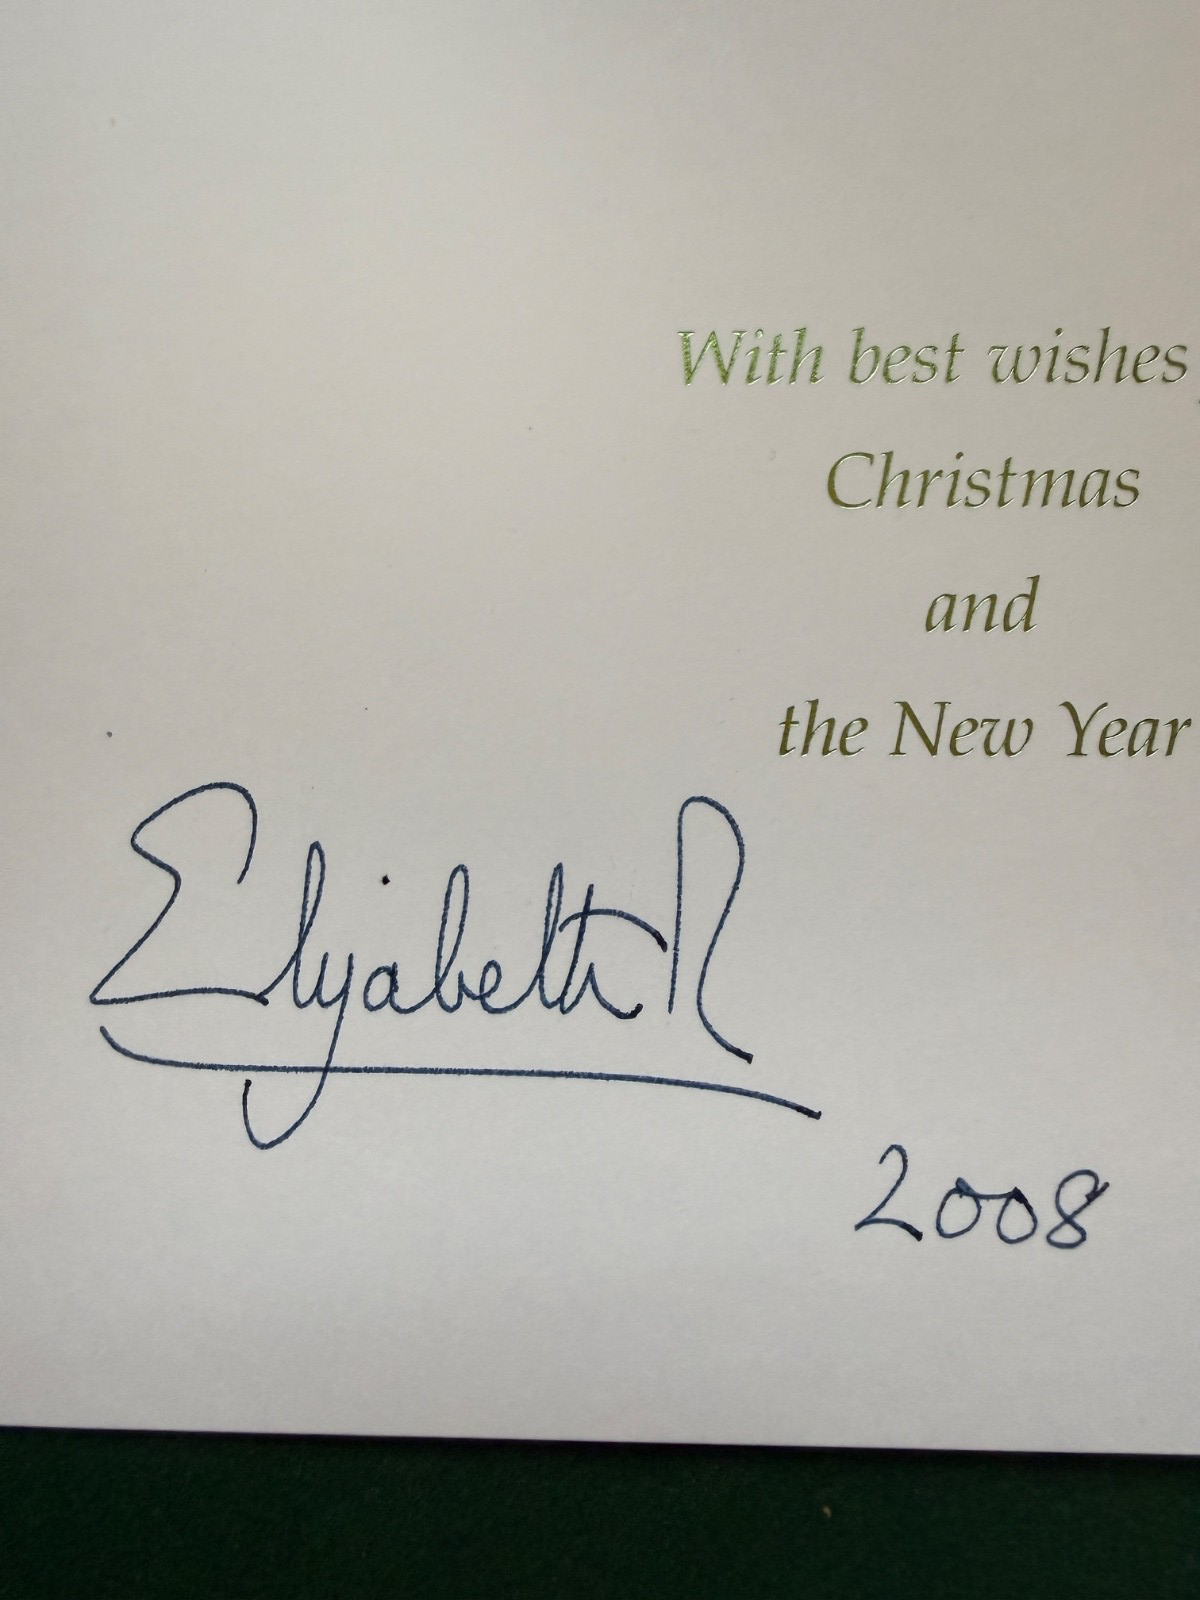 With best wishes
Christmas
and
the New Year
Elizabeth R
2008